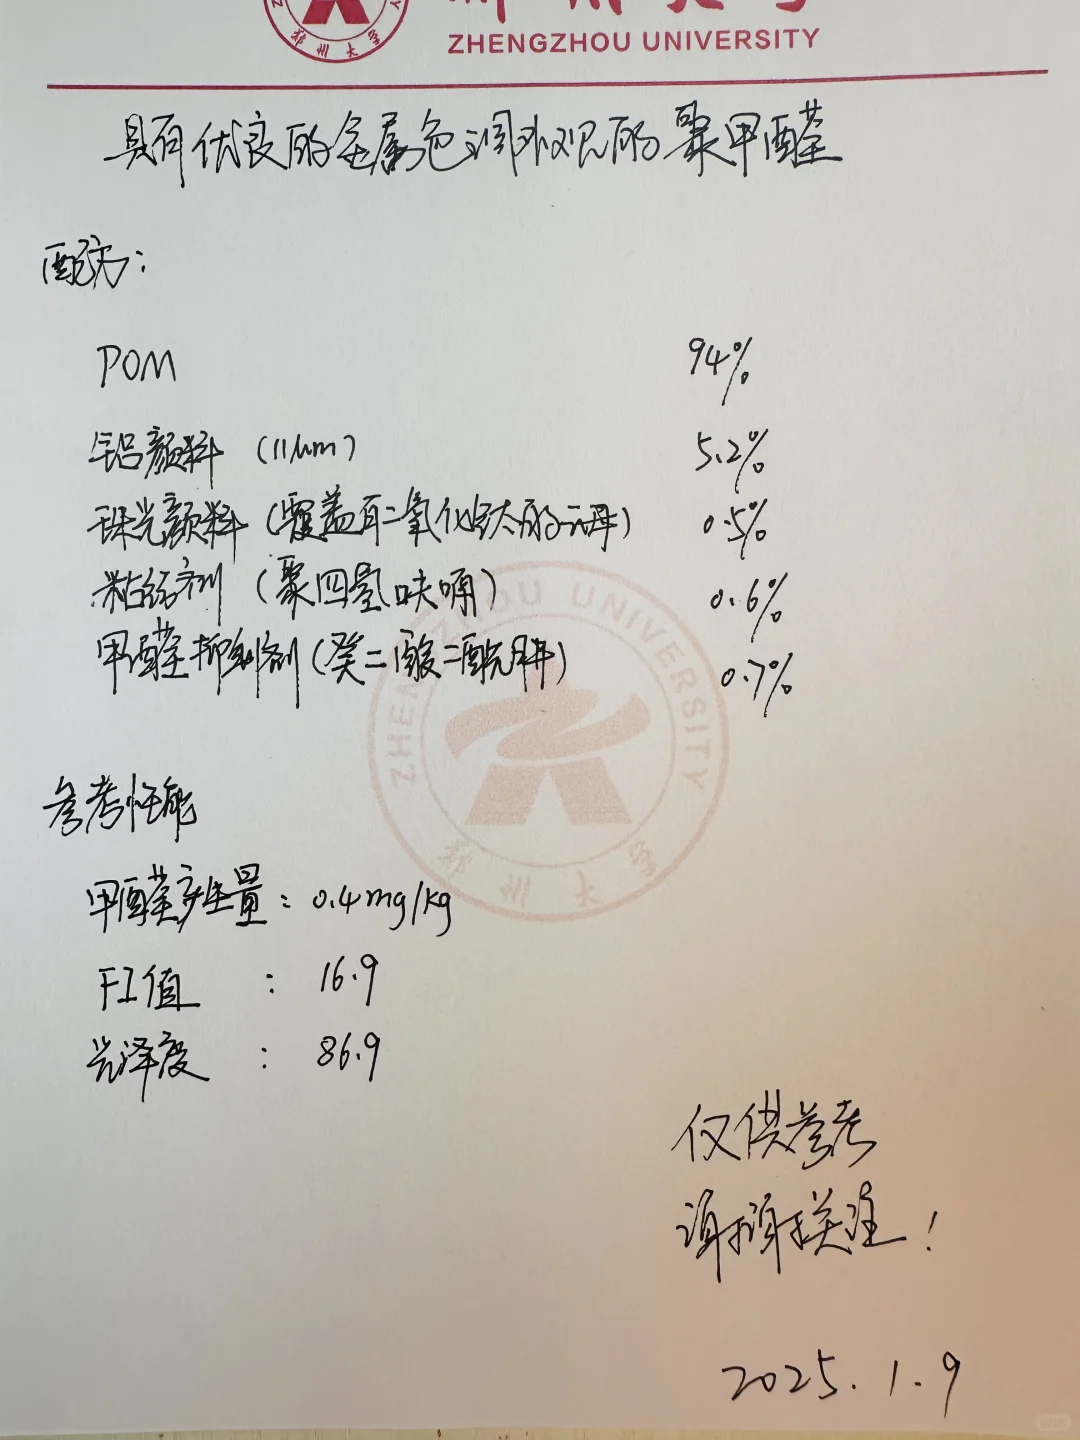 ZHENGZHOU UNIVERSITY
具有优良的金属色调外观的聚甲醛
配方：
POM 94%
铝颜料 (11μm) 5.2%
珠光颜料 (覆盖有二氧化钛的云母) 0.5%
粘结剂 (聚四氢呋喃) 0.6%
甲醛抑制剂 (癸二酸二酰肼) 0.7%
ZHENGZHOU UNIVERSITY
郑州大学
参考性能
甲醛产生量：0.4mg/kg
FI值 ：16.9
光泽度 ：86.9
仅供参考
谢谢关注！
2025.1.9